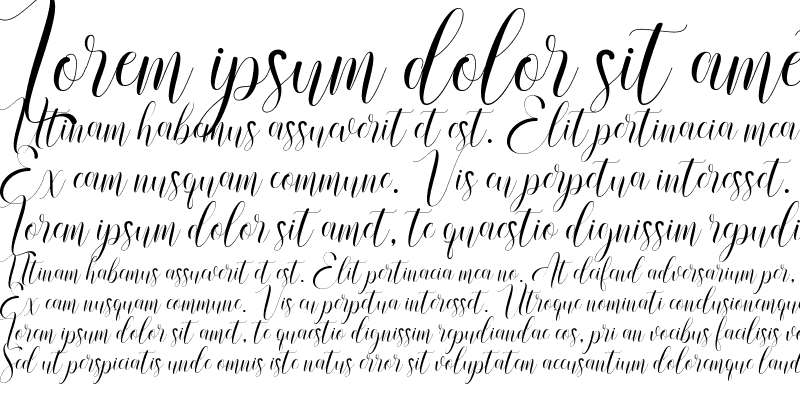 Lorem ipsum dolor sit ame
Utinam habemus assueverit et est. Elit pertinacia mea
Ex eam nusquam commune. Vis eu perpetua interesset.
Lorem ipsum dolor sit amet, te quaestio dignissim repudi
Utinam habemus assueverit et est. Elit pertinacia mea no. At eleifend adversarium per,
Ex eam nusquam commune. Vis eu perpetua interesset. Utroque nominati conclusionemqu
Lorem ipsum dolor sit amet, te quaestio dignissim repudiandae eos, pri an vocibus facilisis v
Sed ut perspiciatis unde omnis iste natus error sit voluptatem accusantium doloremque laud